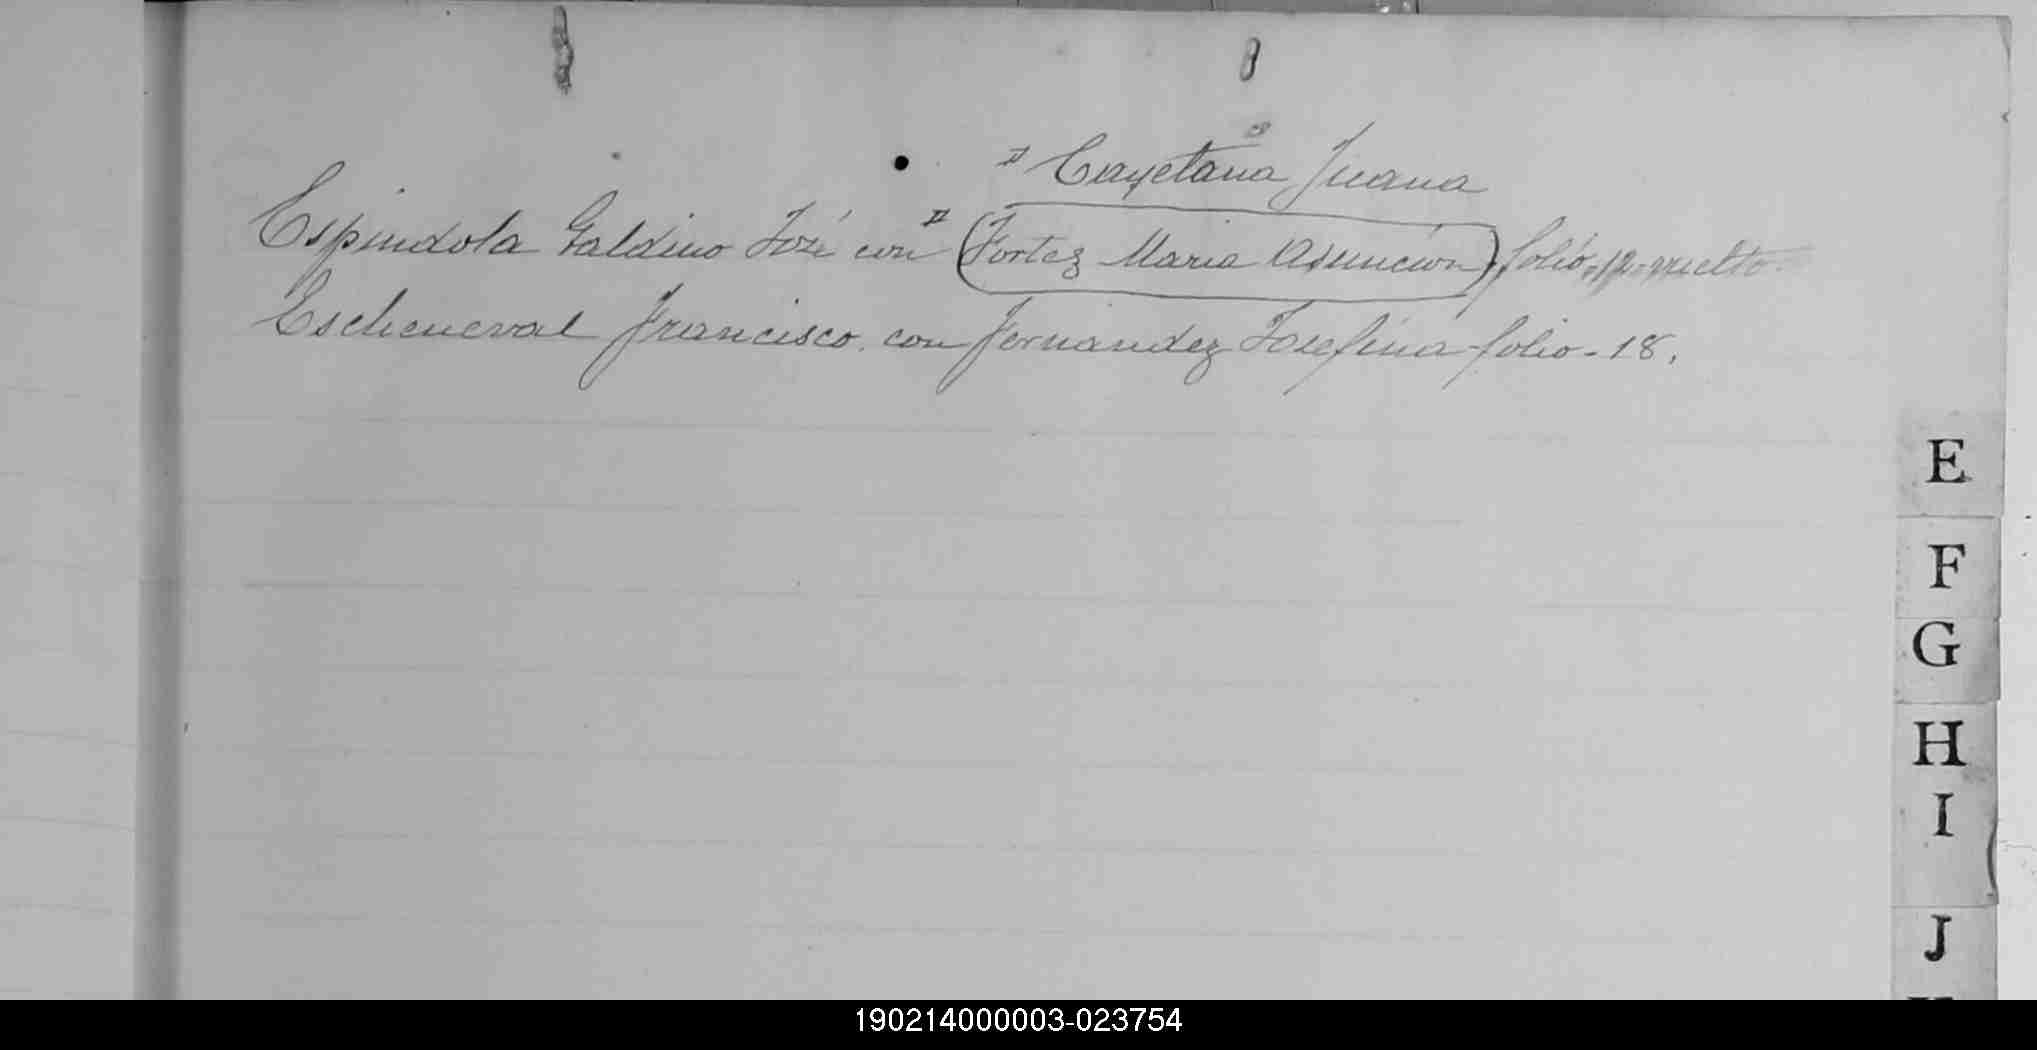 " Cayetana Juana
Espindola Galdino José con " (Fortez Maria Asunción) folio, 12, vuelto.
Escheneval Francisco con Fernandez Josefina folio - 18.
E
F
G
H
I
J
190214000003-023754